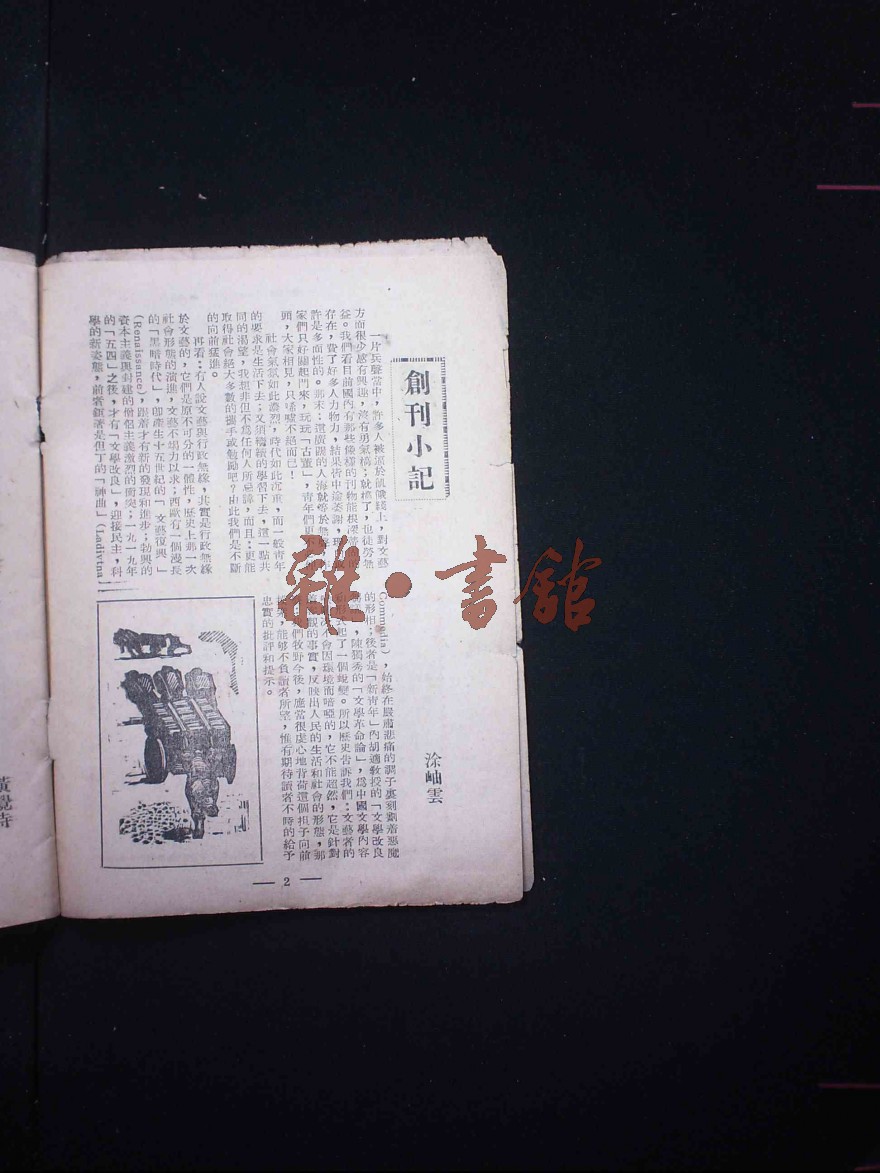 創刊小記
涂岫雲
一片兵聲當中，許多人被迫於飢餓綫上，對文藝
方面很少感有興趣，沒有勇氣搞；就搞了，也徒勞無
益。我們看目前國內有那些像樣的刊物能根深蒂固的
存在，費了好多人力物力，結果皆中途萎謝，理
許是多面性的。那末；這廣闊的人海就等於無
家們只好關起門來，玩玩「古董」，青年們更不
頭，大家相見，只唏噓不絕而已！
社會氣氛如此濃烈，時代如此沉重，而一般青年
的要求是生活下去；又須積續的學習下去，這一點共
同的渴望，我想非但不為任何人所忌諱，而且：更能
取得社會絕大多數的攜手或勉勵吧？由此我們是不斷
的向前猛進。
再看：有人說文藝與行政無緣，其實是行政無緣
於文藝的，它們是原不可分的一體性，歷史上那一次
社會形態的演進，文藝不竭力以求；西歐有一個漫長
的「黑暗時代」，卽產生十五世紀的「文藝復興」
(Renaissance)，跟着才有新的發現和進步；勃興的
資本主義與封建的僧侶主義激烈的衝突；一九一九年
的「五四」之後，才有「文學改良」，迎接民主，科
學的新姿態，前者鉅著是但丁的「神曲」(Ladivina
Commedia)，始終在嚴肅悲痛的調子裏刻劃着惡魔
的形相；後者是「新青年」內胡適教授的「文學改良
，陳獨秀的「文學革命論」，爲中國文學內容
和形式起了一個蛻變。所以歷史告訴我們：文藝者的
不會因環境而喑啞的，它不能超然，它是針對
客觀的事實，反映出人民的生活和社會的形態，那
我們牧野今後，應當很虛心地背荷這個担子向前
，能够不負讀者所望，惟有期待讀者不時的給予
忠實的批評和提示。
— 2 —
黃覺寺
雜·書館